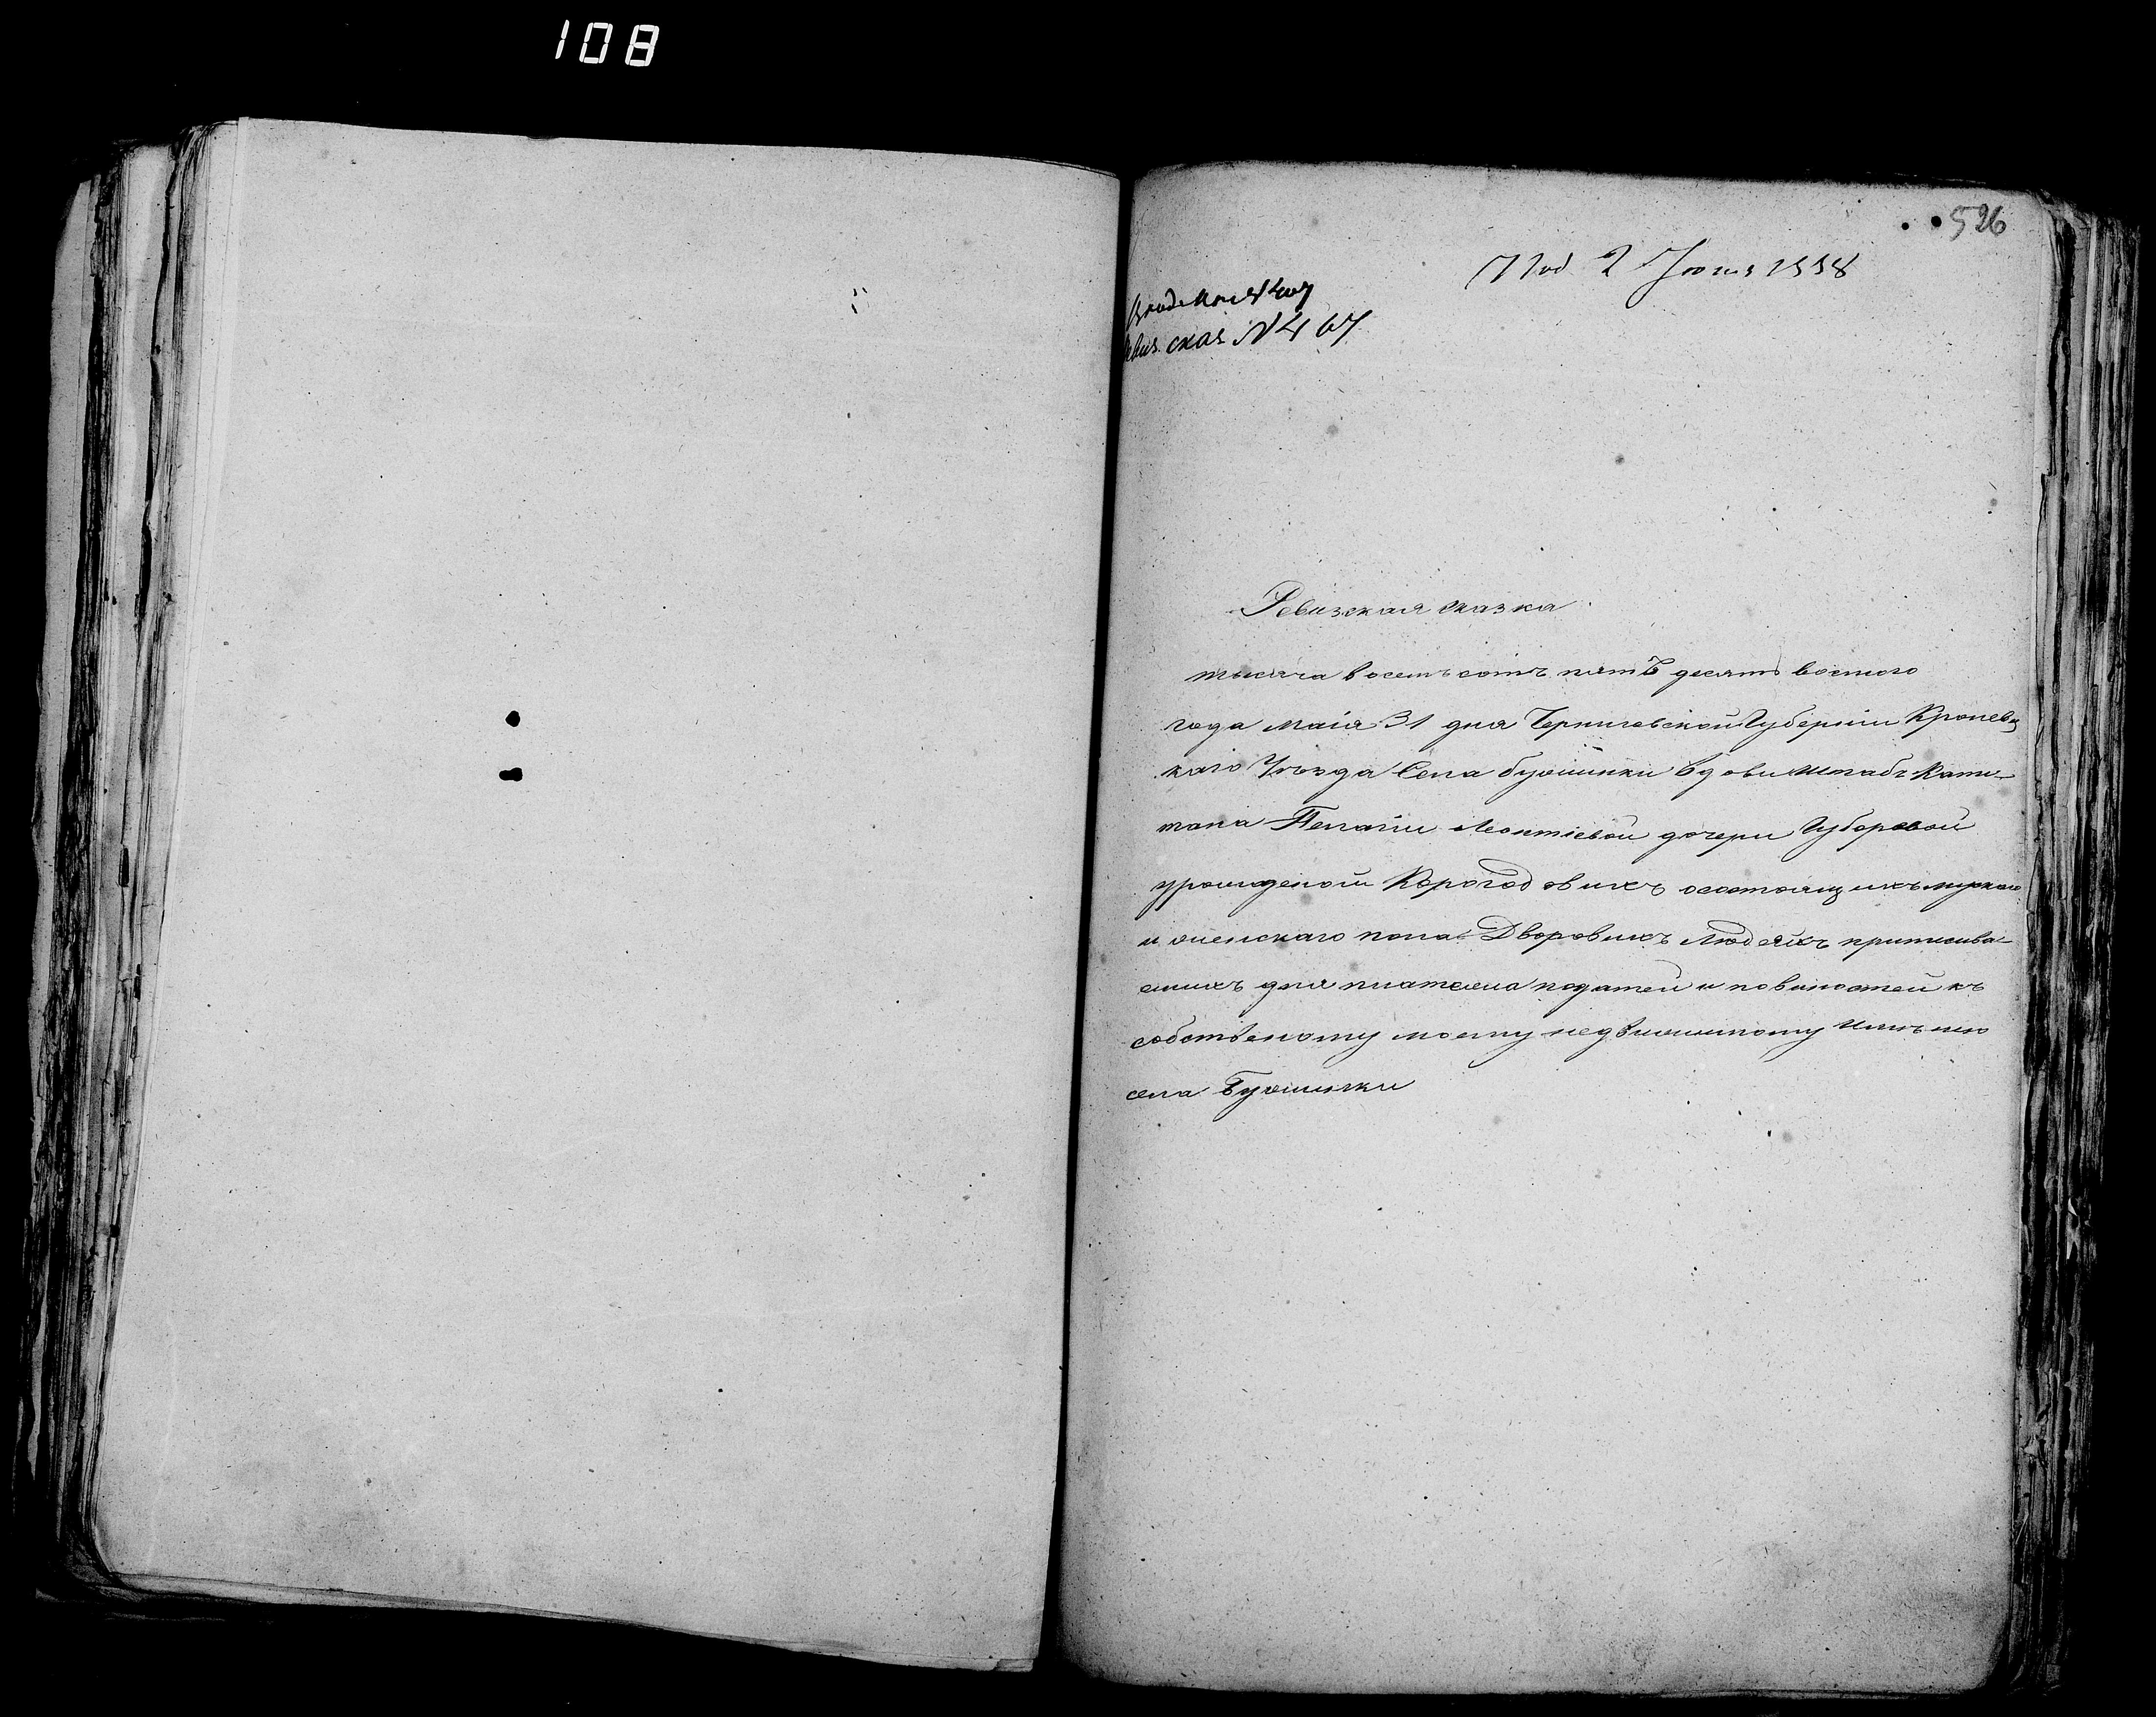 108
526
Под. 2 Июня 1858
ская № 467
Ревизская сказка
тысяча восемъсотъ пятъ десятъ восмого
года маія 31 дня Черниговской Губерніи Кролевц
каго Уѣзда Села бужанки вдови Штабъ Капи-
тана Пелагіи Леонтіевой дочери Губоровой
урожденой Корогод овихъ осостоящихъ мужско
и женскаго пола Дворовихъ Людехъ приписива
емихъ для платежа податей и повиностей къ
собственому моему недвижимому имѣнію
села Бужанки